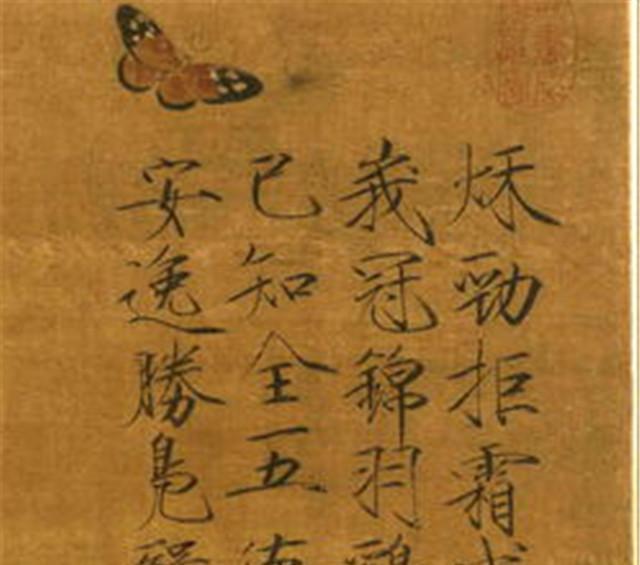 秌勁拒霜
峩冠錦羽
已知全五
安逸勝鳧